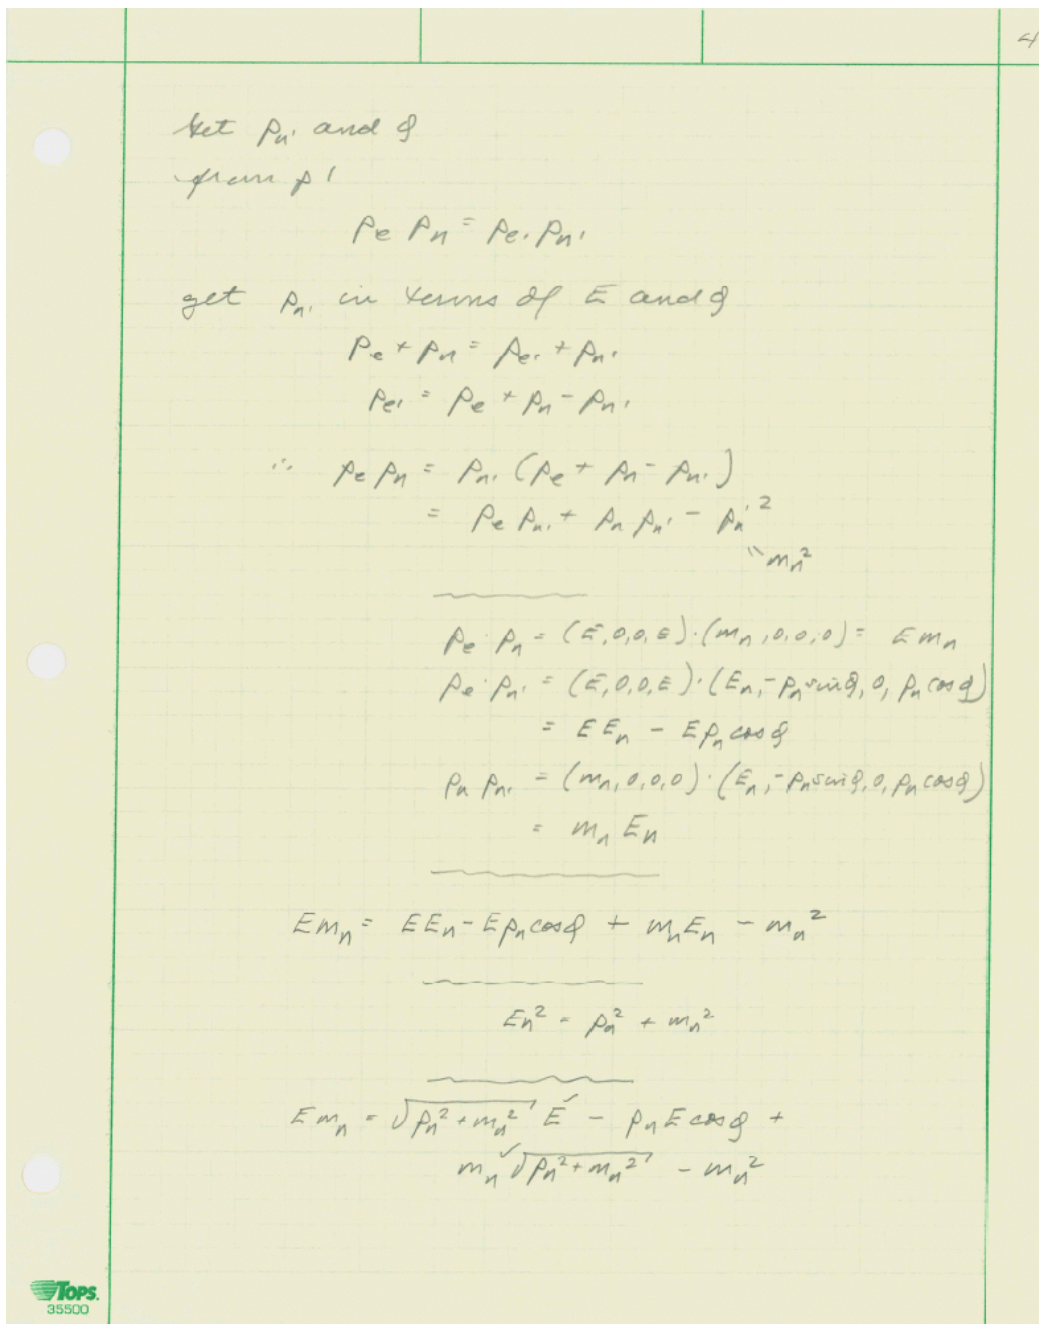 4
Get pₙ' and φ
from p'
pₑ pₙ = pₑ' pₙ'
get pₙ' in terms of E and φ
pₑ + pₙ = pₑ' + pₙ'
pₑ' = pₑ + pₙ - pₙ'
∴ pₑ pₙ = pₙ' (pₑ + pₙ - pₙ')
= pₑ pₙ' + pₙ pₙ' - pₙ'²
" mₙ²
pₑ · pₙ = (E,0,0,E)·(mₙ,0,0,0) = E mₙ
pₑ · pₙ' = (E,0,0,E)·(Eₙ,-pₙ sinφ,0,pₙ cosφ)
= E Eₙ - E pₙ cosφ
pₙ pₙ' = (mₙ,0,0,0)·(Eₙ,-pₙ sinφ,0,pₙ cosφ)
= mₙ Eₙ
E mₙ = E Eₙ - E pₙ cosφ + mₙ Eₙ - mₙ²
Eₙ² = pₙ² + mₙ²
E mₙ = √(pₙ² + mₙ²) E ✓ - pₙ E cosφ +
mₙ ✓ √(pₙ² + mₙ²) - mₙ²
TOPS.
35500